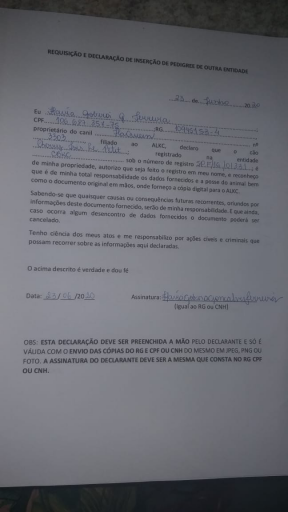 REQUISIÇÃO E DECLARAÇÃO DE INSERÇÃO DE PEDIGREE DE OUTRA ENTIDADE
23 de Junho
Eu
CPF RG
proprietário do canil nº
filiado ao ALKC, declaro que o cão
registrado na entidade
sob o número de registro é
de minha propriedade, autorizo que seja feito o registro em meu nome, e reconheço
que é de minha total responsabilidade os dados fornecidos e a posse do animal bem
como o documento original em mãos, onde forneço a cópia digital para o ALKC.
Sabendo-se que quaisquer causas ou consequências futuras recorrentes, oriundos por
informações deste documento fornecido, serão de minha responsabilidade. E que ainda,
caso ocorra algum desencontro de dados fornecidos o documento poderá ser
cancelado.
Tenho ciência dos meus atos e me responsabilizo por ações cíveis e criminais que
possam recorrer sobre as informações aqui declaradas.
O acima descrito é verdade e dou fé
Data: Assinatura:
(Igual ao RG ou CNH)
OBS: ESTA DECLARAÇÃO DEVE SER PREENCHIDA A MÃO PELO DECLARANTE E SÓ É
VÁLIDA COM O ENVIO DAS CÓPIAS DO RG E CPF OU CNH DO MESMO EM JPEG, PNG OU
FOTO. A ASSINATURA DO DECLARANTE DEVE SER A MESMA QUE CONSTA NO RG CPF
OU CNH.